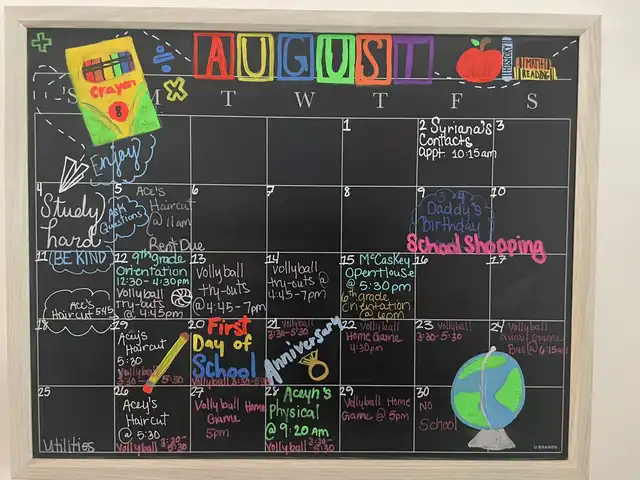 AUGUST
Crayon
8
HISTORY
MATH
READING
S M T W T F S
1
2 Syriana's
Contacts
appt. 10:15am
3
Enjoy
4
Study
hard
5
Ace's
Haircut
@ 11am
Ask
Questions
Rent Due
6
7
8
9
Daddy's
Birthday
School Shopping
10
11
BE KIND
Ace's
Haircut 5:45
12 9th grade
Orientation
12:30-4:30pm
Vollyball
try-outs @
4:45-7pm
13
Vollyball
try-outs
@ 4:45-7pm
14
Vollyball
try-outs @
4:45-7pm
15 McCaskey
Open House
@ 5:30pm
6th grade
Orientation
@ 6pm
16
17
18
Acey's
Haircut
5:30
Vollyball
3:30-5:30
20 First
Day of
School
Vollyball 3:30-5:30
21 Vollyball
3:30-5:30
Anniversary
22 Vollyball
Home Game
4:30pm
23 Vollyball
3:30-5:30
24 Vollyball
away Game
Bus @ 6:15am
25
Utilities
26
Acey's
Haircut
@ 5:30
Vollyball 3:30-
5:30
27
Vollyball Home
Game
5pm
28 Aceyn's
Physical
@ 9:20 am
Vollyball 3:30-
5:30
29
Vollyball Home
Game @ 5pm
30
No
School
U BRANDS